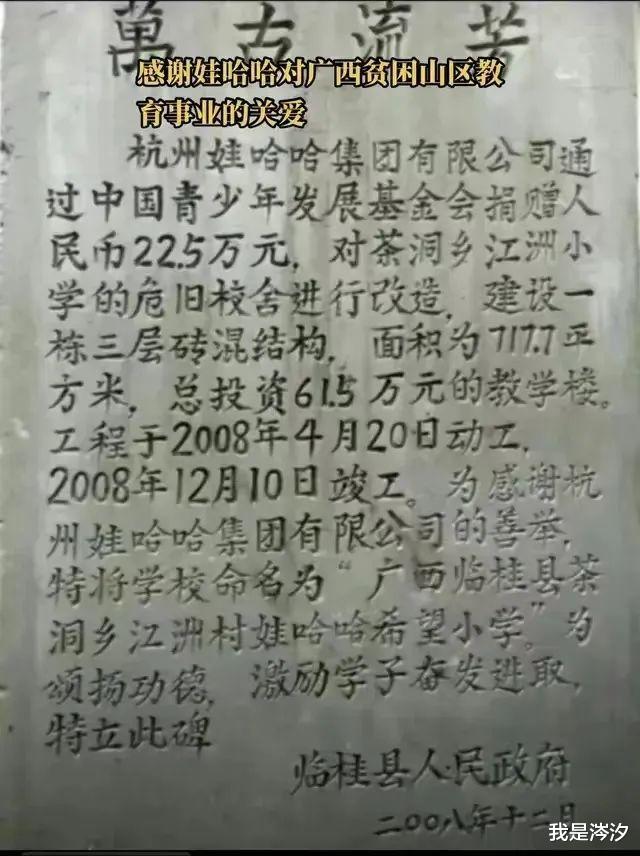 萬古流芳
感谢娃哈哈对广西贫困山区教
育事业的关爱
杭州娃哈哈集团有限公司通
过中国青少年发展基金会捐赠人
民币22.5万元，对茶洞乡江洲小
学的危旧校舍进行改造，建设一
栋三层砖混结构，面积为717.7平
方米，总投资61.5万元的教学楼。
工程于2008年4月20日动工，
2008年12月10日竣工。为感谢杭
州娃哈哈集团有限公司的善举，
特将学校命名为“广西临桂县茶
洞乡江洲村娃哈哈希望小学”。为
颂扬功德，激励学子奋发进取，
特立此碑
临桂县人民政府
二00八年十二月
我是涔汐